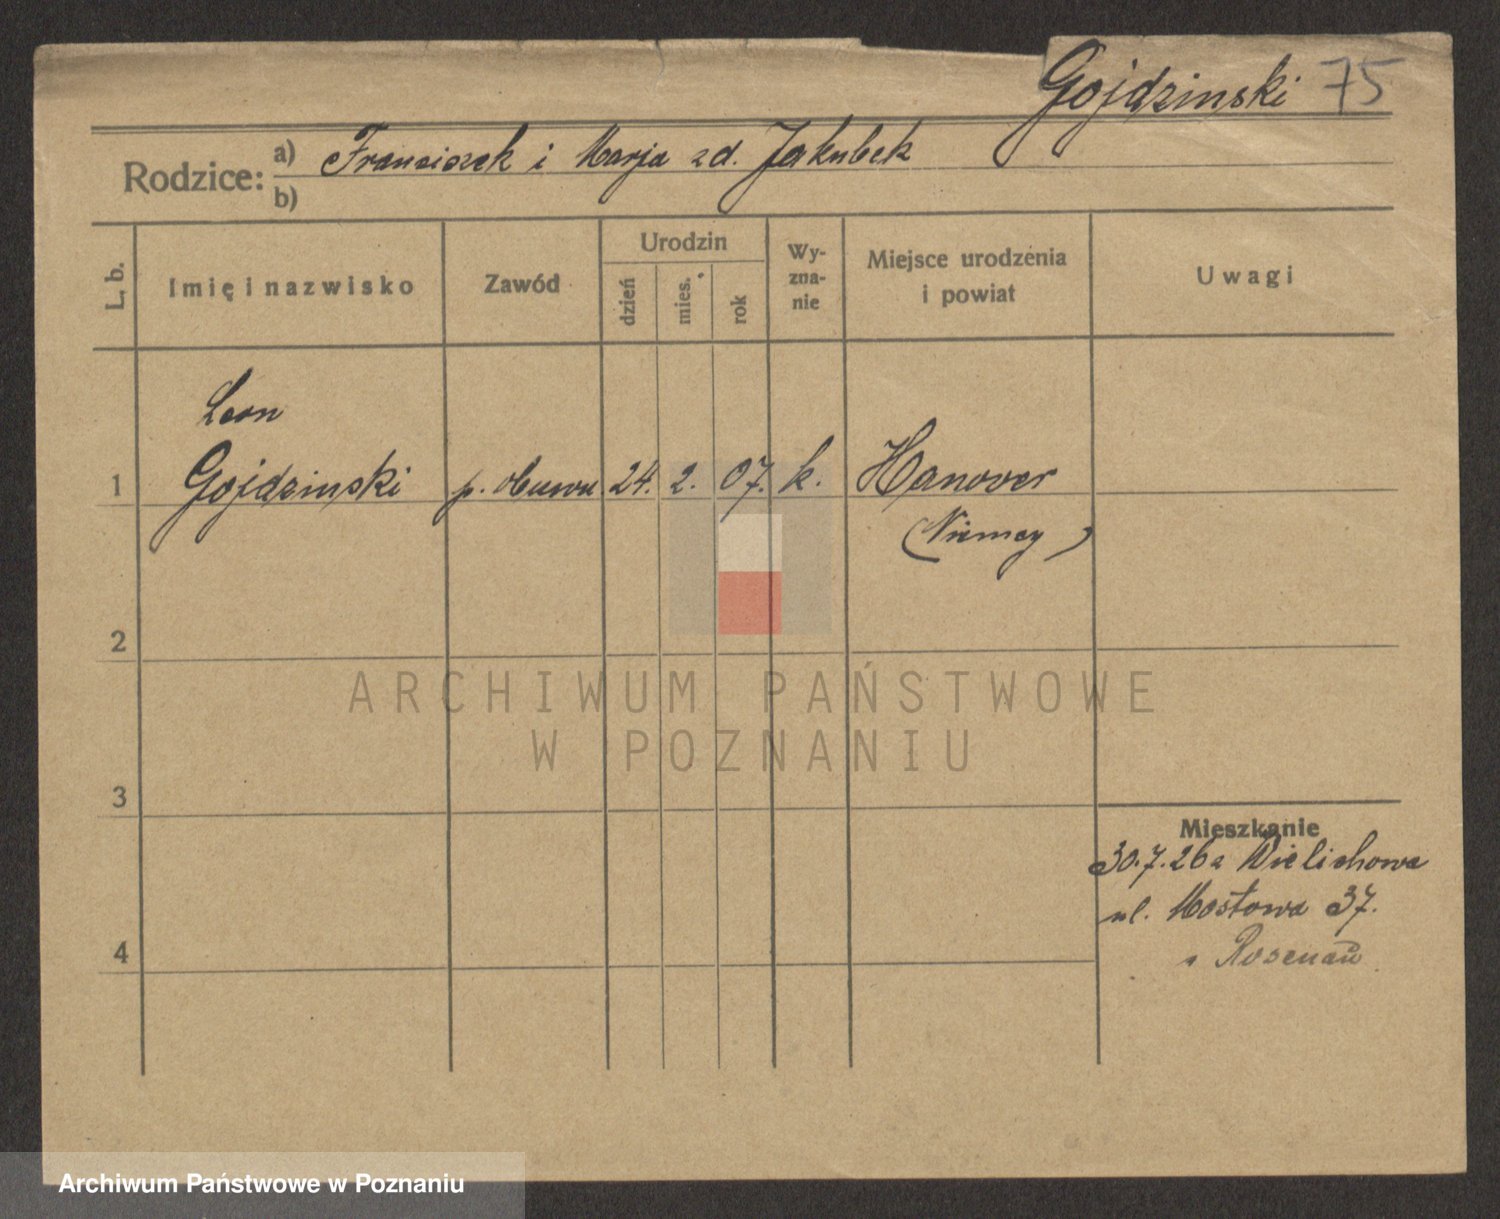 Gojdzinski 75
Rodzice: a) Franciszek i Marja zd. Jakubek
b)
L. b.
Imię i nazwisko
Zawód
Urodzin
dzień
mies.
rok
Wy-
zna-
nie
Miejsce urodzenia
i powiat
Uwagi
Leon
1 Gojdzinski p. obuwn 24. 2. 07. k. Hanover
(Niemcy)
2
ARCHIWUM PAŃSTWOWE
W POZNANIU
3
Mieszkanie
30.7.26 z Wielichowa
ul. Mostowa 37.
4
Rosenau
Archiwum Państwowe w Poznaniu